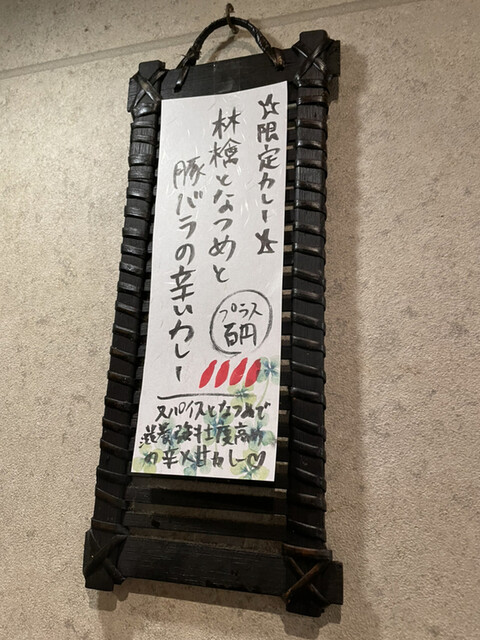 ☆限定カレー☆
林檎となつめと
豚バラの辛いカレー
プラス
百円
スパイスとなつめで
滋養強壮度高め
の辛×甘カレー♡